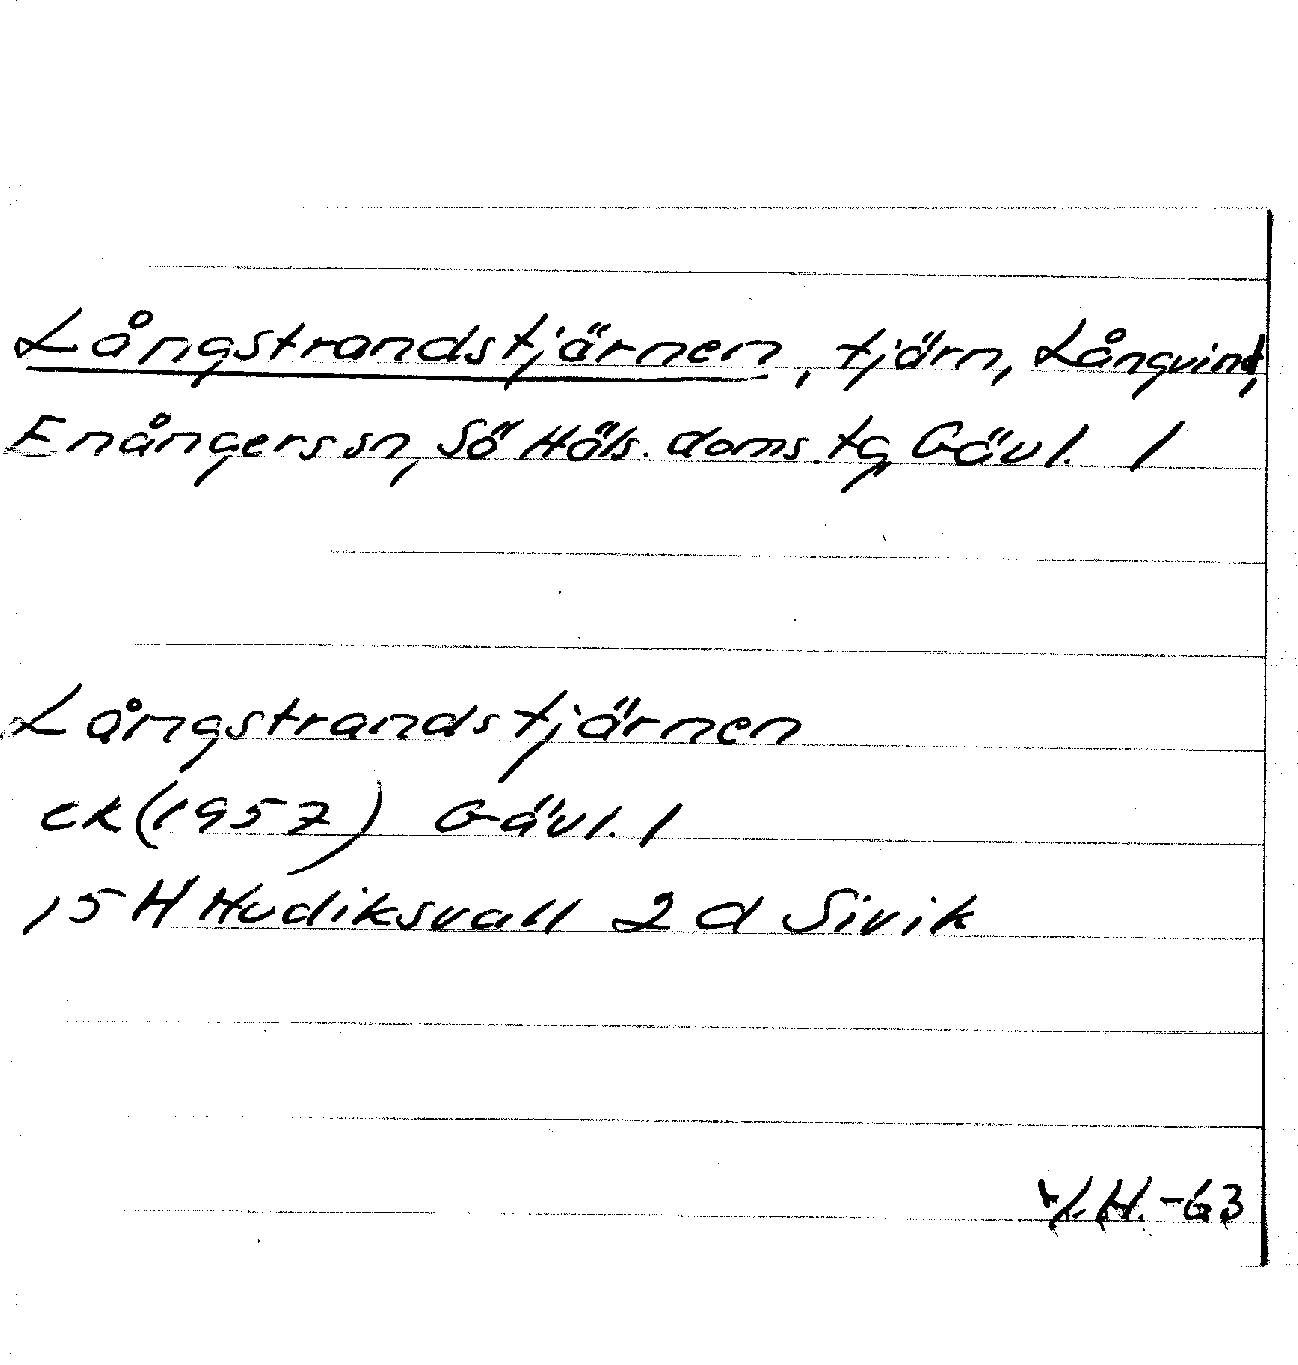 Långstrandstjärnen, tjärn, Långvind,
Enångers sn, Sö Häls. doms. tg, Gävl. l
Långstrandstjärnen
ek (1957) Gävl. l
15 H Hudiksvall 2 d Sivik
H. -63